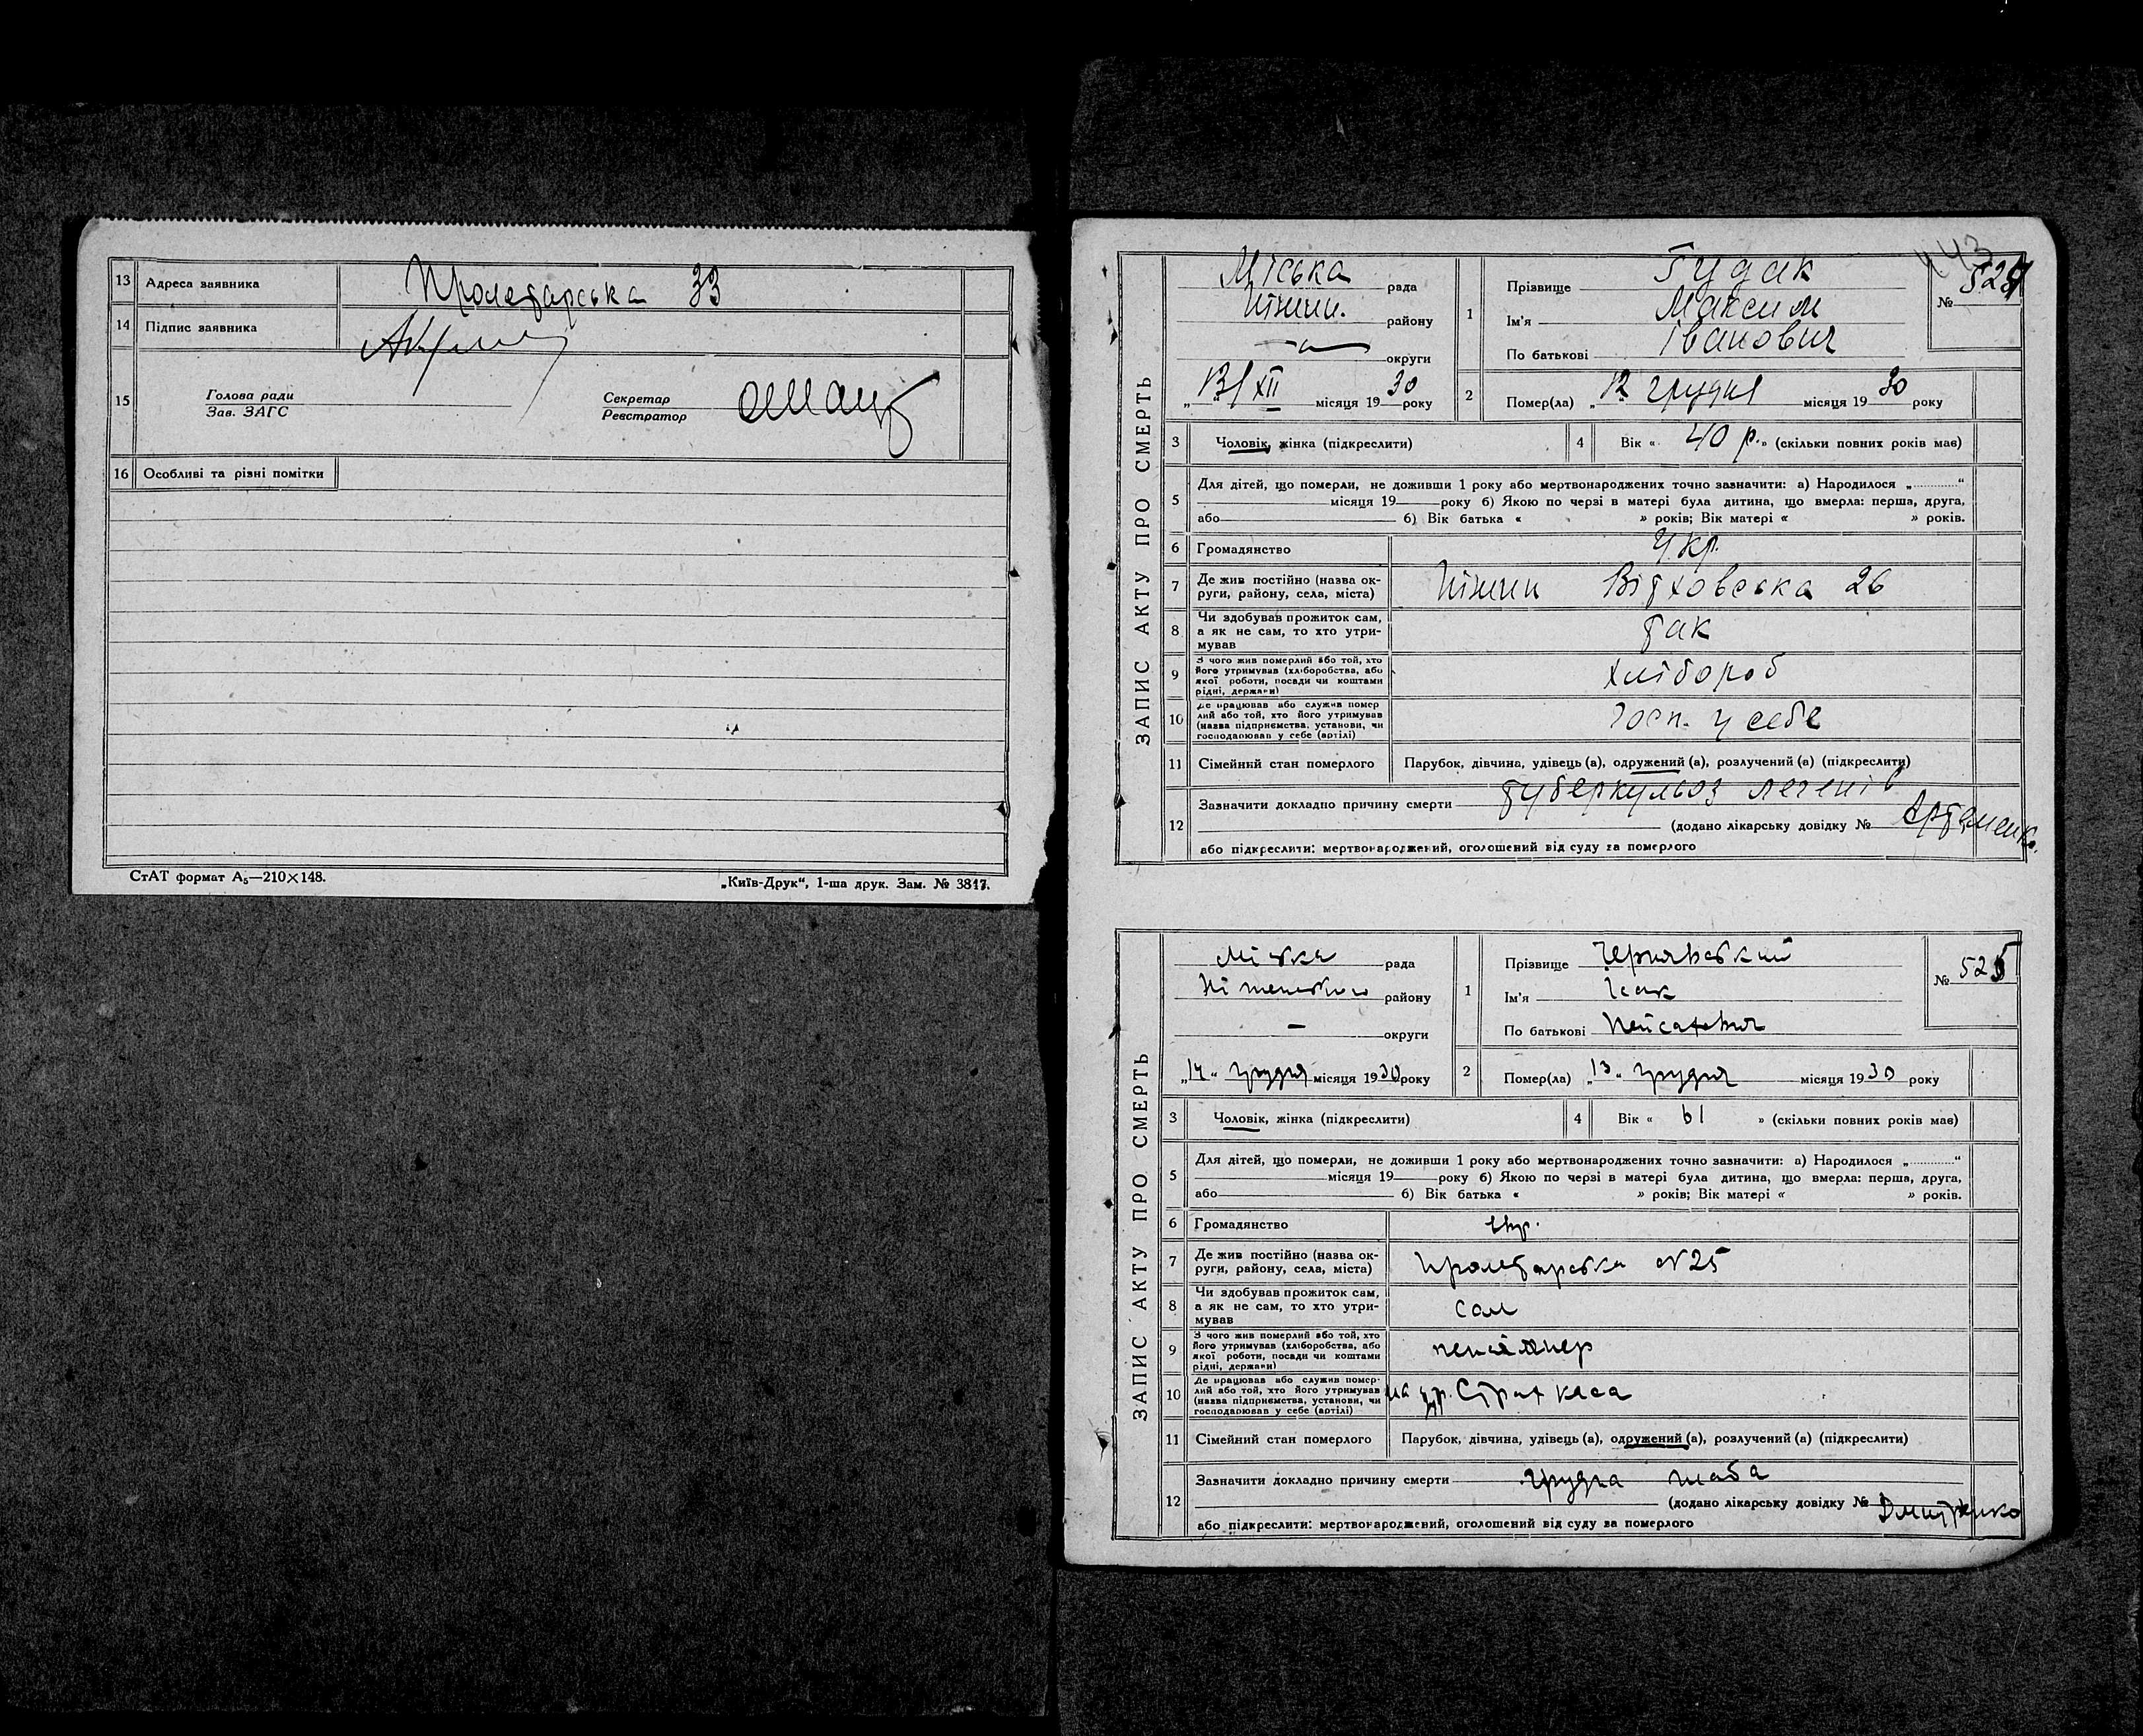 13 Адреса заявника Пролетарська 33
14 Підпис заявника
15 Голова ради
Зав. ЗАГС
Секретар
Реєстратор
16 Особливі та різні помітки
СтАТ формат А₅—210×148.
„Київ-Друк“, 1-ша друк. Зам. № 3817.
143
ЗАПИС АКТУ ПРО СМЕРТЬ
Міська рада
Ніжин. району
— округи
„13/XII місяця 1930 року
1 Прізвище Гудак
Ім'я Максим
По батькові Іванович
№ 524
2 Помер(ла) „12 грудня місяця 1930 року
3 Чоловік, жінка (підкреслити)
4 Вік « 40 р.» (скільки повних років має)
5 Для дітей, що померли, не доживши 1 року або мертвонароджених точно зазначити: а) Народилося „ “
місяця 19 року б) Якою по черзі в матері була дитина, що вмерла: перша, друга,
або б) Вік батька « » років; Вік матері « » років.
6 Громадянство Укр.
7 Де жив постійно (назва ок-
руги, району, села, міста) Ніжин 26
8 Чи здобував прожиток сам,
а як не сам, то хто утри-
мував так
9 З чого жив померлий або той, хто
його утримував (хліборобства, або
якої роботи, посади чи коштами
рідні, держави) хлібороб
10 Де працював або служив помер
лий або той, хто його утримував
(назва підприємства, установи, чи
господарював у себе (артілі) Госп. у себе
11 Сімейний стан померлого Парубок, дівчина, удівець (а), одружений (а), розлучений (а) (підкреслити)
12 Зазначити докладно причину смерти туберкульоз легенів
(додано лікарську довідку № Артеменко
або підкреслити: мертвонароджений, оголошений від суду за померлого
ЗАПИС АКТУ ПРО СМЕРТЬ
Міська рада
Ніженського району
— округи
„14“ грудня місяця 1930 року
1 Прізвище Чернявський
Ім'я Ісак
По батькові Пейсахович
№ 525
2 Помер(ла) „13“ грудня місяця 1930 року
3 Чоловік, жінка (підкреслити)
4 Вік « 61 » (скільки повних років має)
5 Для дітей, що померли, не доживши 1 року або мертвонароджених точно зазначити: а) Народилося „ “
місяця 19 року б) Якою по черзі в матері була дитина, що вмерла: перша, друга,
або б) Вік батька « » років; Вік матері « » років.
6 Громадянство Укр.
7 Де жив постійно (назва ок-
руги, району, села, міста) Пролетарська №25
8 Чи здобував прожиток сам,
а як не сам, то хто утри-
мував сам
9 З чого жив померлий або той, хто
його утримував (хліборобства, або
якої роботи, посади чи коштами
рідні, держави) пенсіонер
10 Де працював або служив помер-
лий або той, хто його утримував
(назва підприємства, установи, чи
господарював у себе (артілі) Страх каса
11 Сімейний стан померлого Парубок, дівчина, удівець (а), одружений (а), розлучений (а) (підкреслити)
12 Зазначити докладно причину смерти грудна жаба
(додано лікарську довідку № Дмитренко
або підкреслити: мертвонароджений, оголошений від суду за померлого